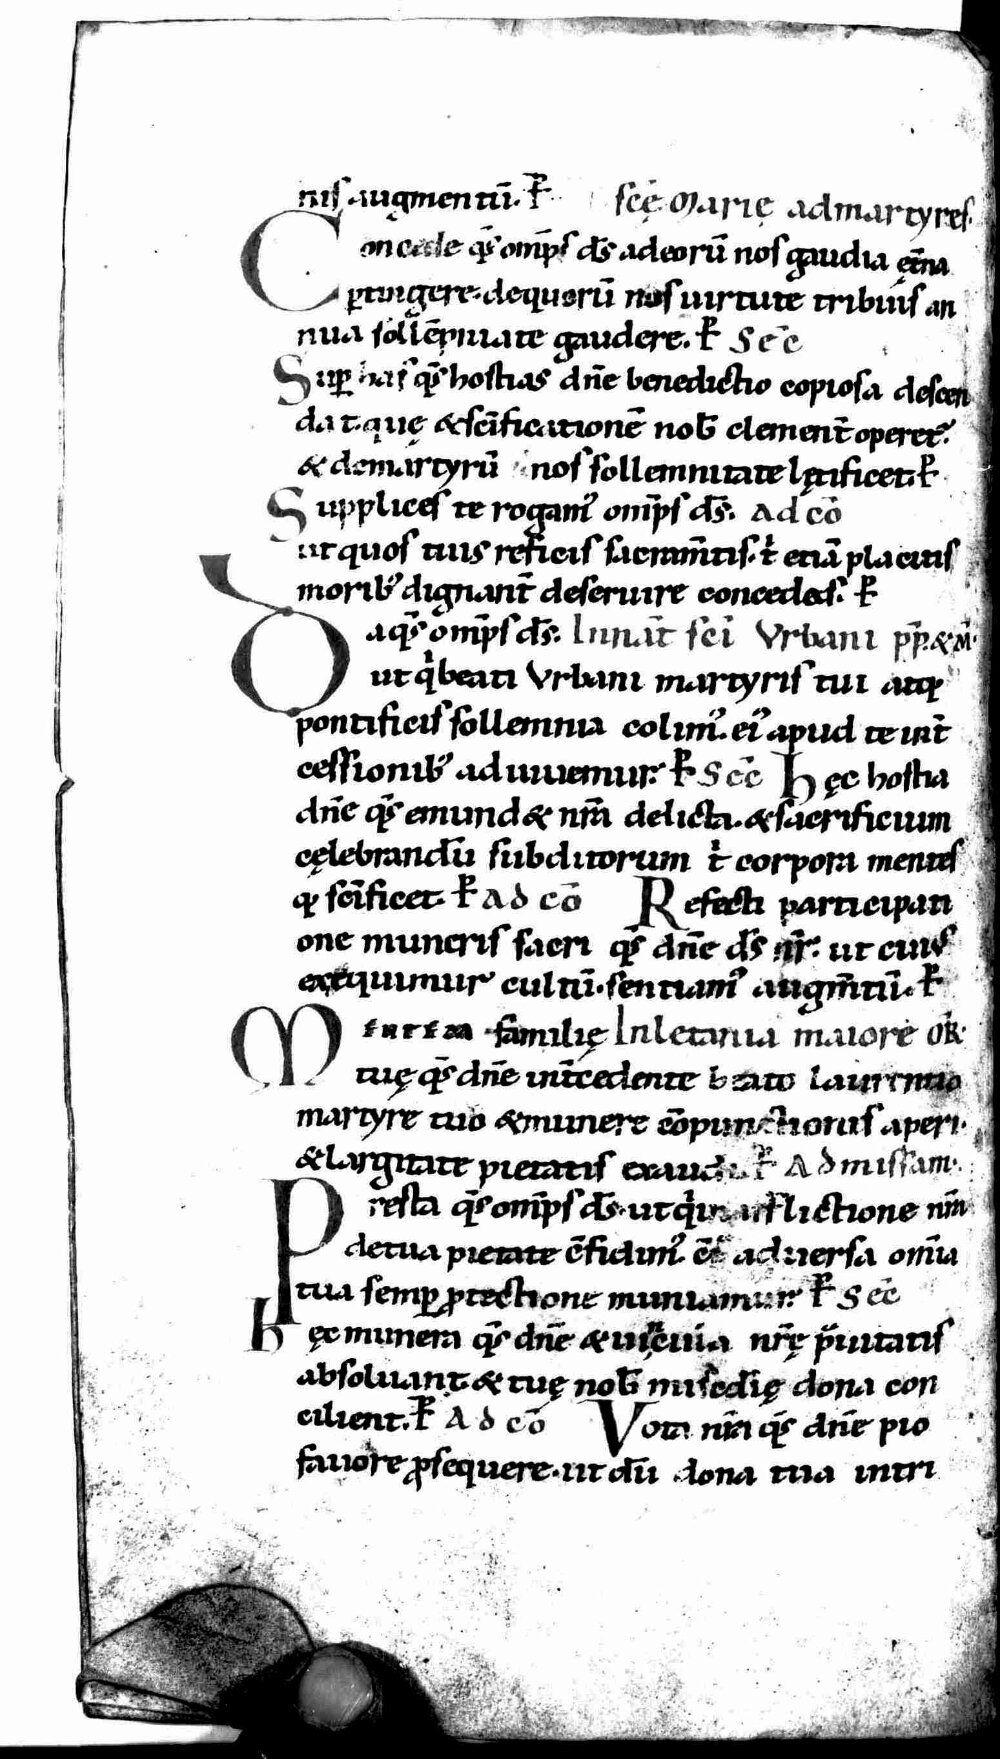 nis augmentū. P̄ scę̄ Marię ad martyres.
Concede qs̄ omp̄s ds̄ ad eorū nos gaudia ęt̄na
ꝑtingere. de quorū nos uirtute tribuis an
nua sollēpnitate gaudere. P̄ Sec̄
Suꝑ has qs̄ hostias dn̄e benedictio copiosa descen
dat. quę & sc̄ificationē nob̄ clement̄ operet᷑.
& de martyrū nos sollemnitate lętificet. P̄
Supplices te rogamꝰ omp̄s ds̄. Ad cō
ut quos tuis reficis sacram̄tis. t̄ etiā placitis
moribꝰ dignant̄ deseruire concedas. P̄
Da qs̄ omp̄s ds̄. In nat̄ sc̄i Vrbani pp̄. & M̄.
ut q̄ beati Vrbani martyris tui atq̢
pontificis sollemnia colimꝰ. eiꝰ apud te int̄
cessionibꝰ adiuuemur. P̄ Sec̄ Hęc hostia
dn̄e qs̄ emund& nr̄a delicta. & sacrificium
cęlebrandū subditorum t̄ corpora mentes
q̢ sc̄ificet. P̄ Ad cō Refecti participati
one muneris sacri qs̄ dn̄e ds̄ nr̄. ut cuiꝰ
exequimur cultū. sentiamꝰ augm̄tū. P̄
Mentem familię In letania maiore or̄.
tuę qs̄ dn̄e int̄cedente beato laurentio
martyre tuo & munere cōpunctionis aperi.
& largitate pietatis exaudi. P̄ Ad missam.
Presta qs̄ omp̄s ds̄. ut q̄ in afflictione nr̄a
de tua pietate cōfidimꝰ. cō aduersa om̄ia
tua semꝑ ꝓtectione muniamur. P̄ Sec̄
hęc munera qs̄ dn̄e & uincula nr̄ę p̄uitatis
absoluant. & tuę nob̄ misc̄dię dona con
cilient. P̄ Ad cō Vota nr̄a qs̄ dn̄e pio
fauore ꝓsequere. ut dū dona tua in tri